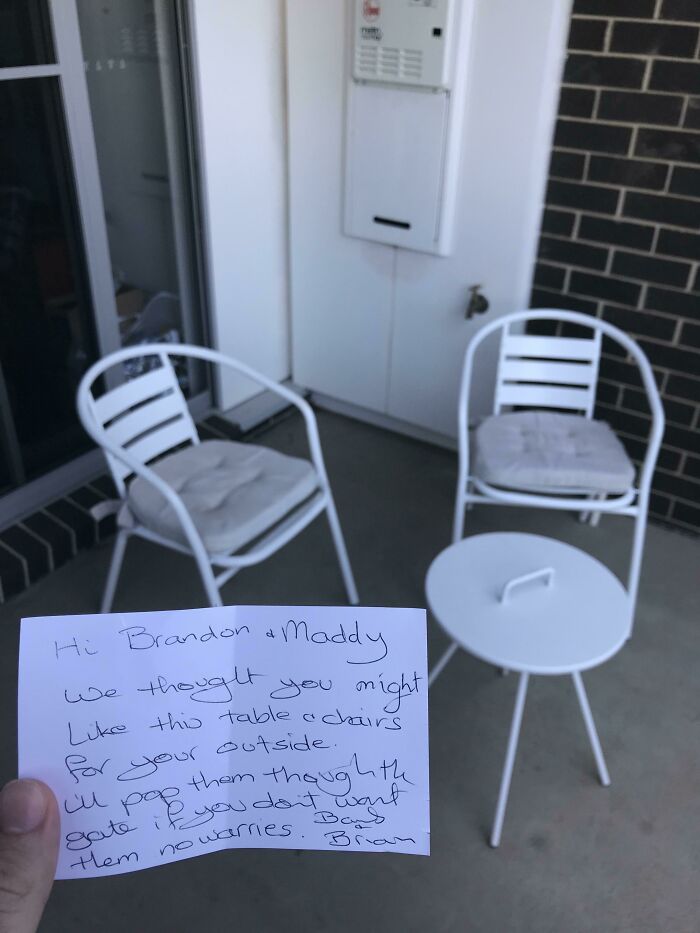 Hi Brandon & Maddy
We thought you might
Like this table & chairs
for your outside.
i'll pop them though the
gate if you don't want
them no warries. Barb &
Brian